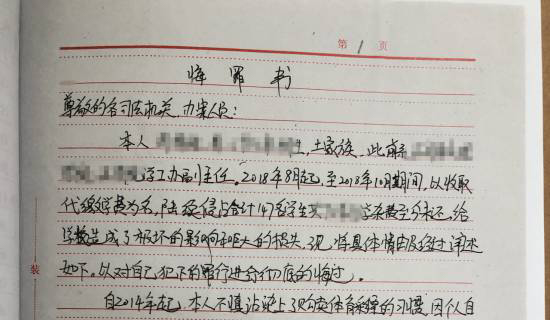 第1页
悔罪书
尊敬的各司法机关、办案人员：
本人，土家族，此前系
工办副主任。2018年8月起，至2018年10月期间，以收取
代缴学费为名，陆续侵占合计147名学生学杂费至今未还，给
学校造成了极坏的影响和巨大的损失，现将具体情由及经过详述
如下，以对自己犯下的罪行进行彻底的悔过。
自2014年起，本人不慎沾染上了购买体育彩票的习惯，因个人自
装